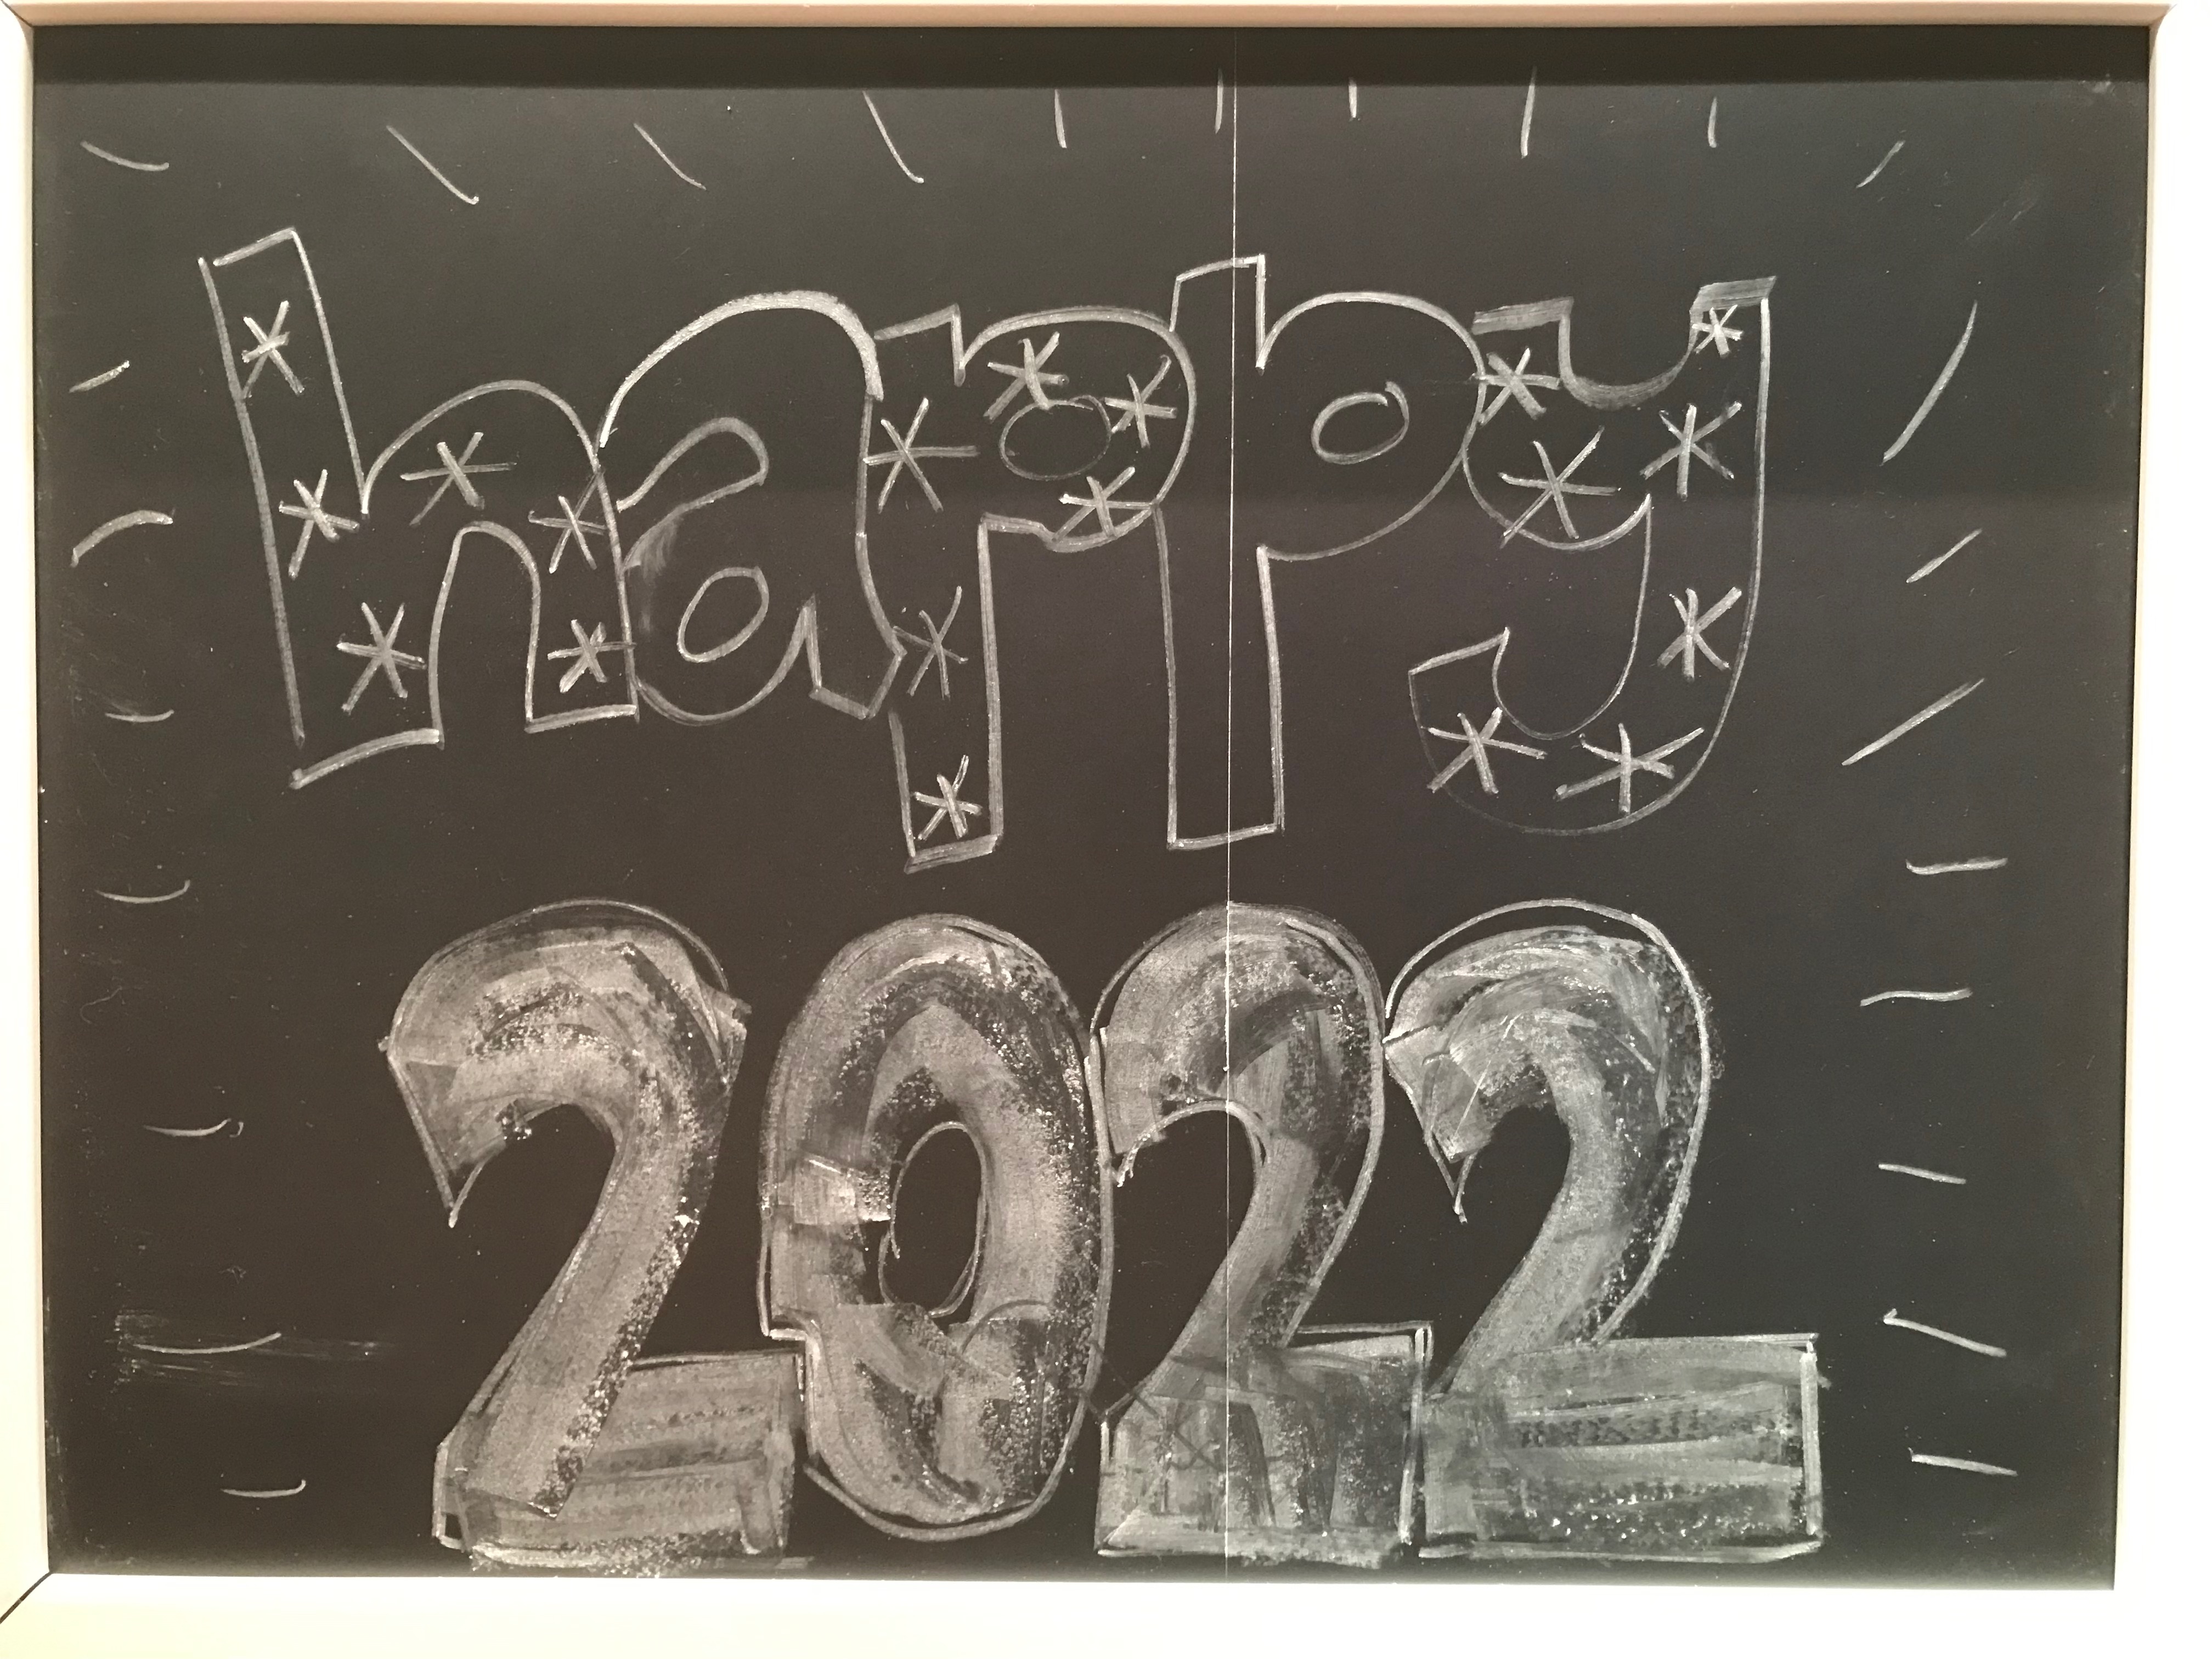 happy
2022